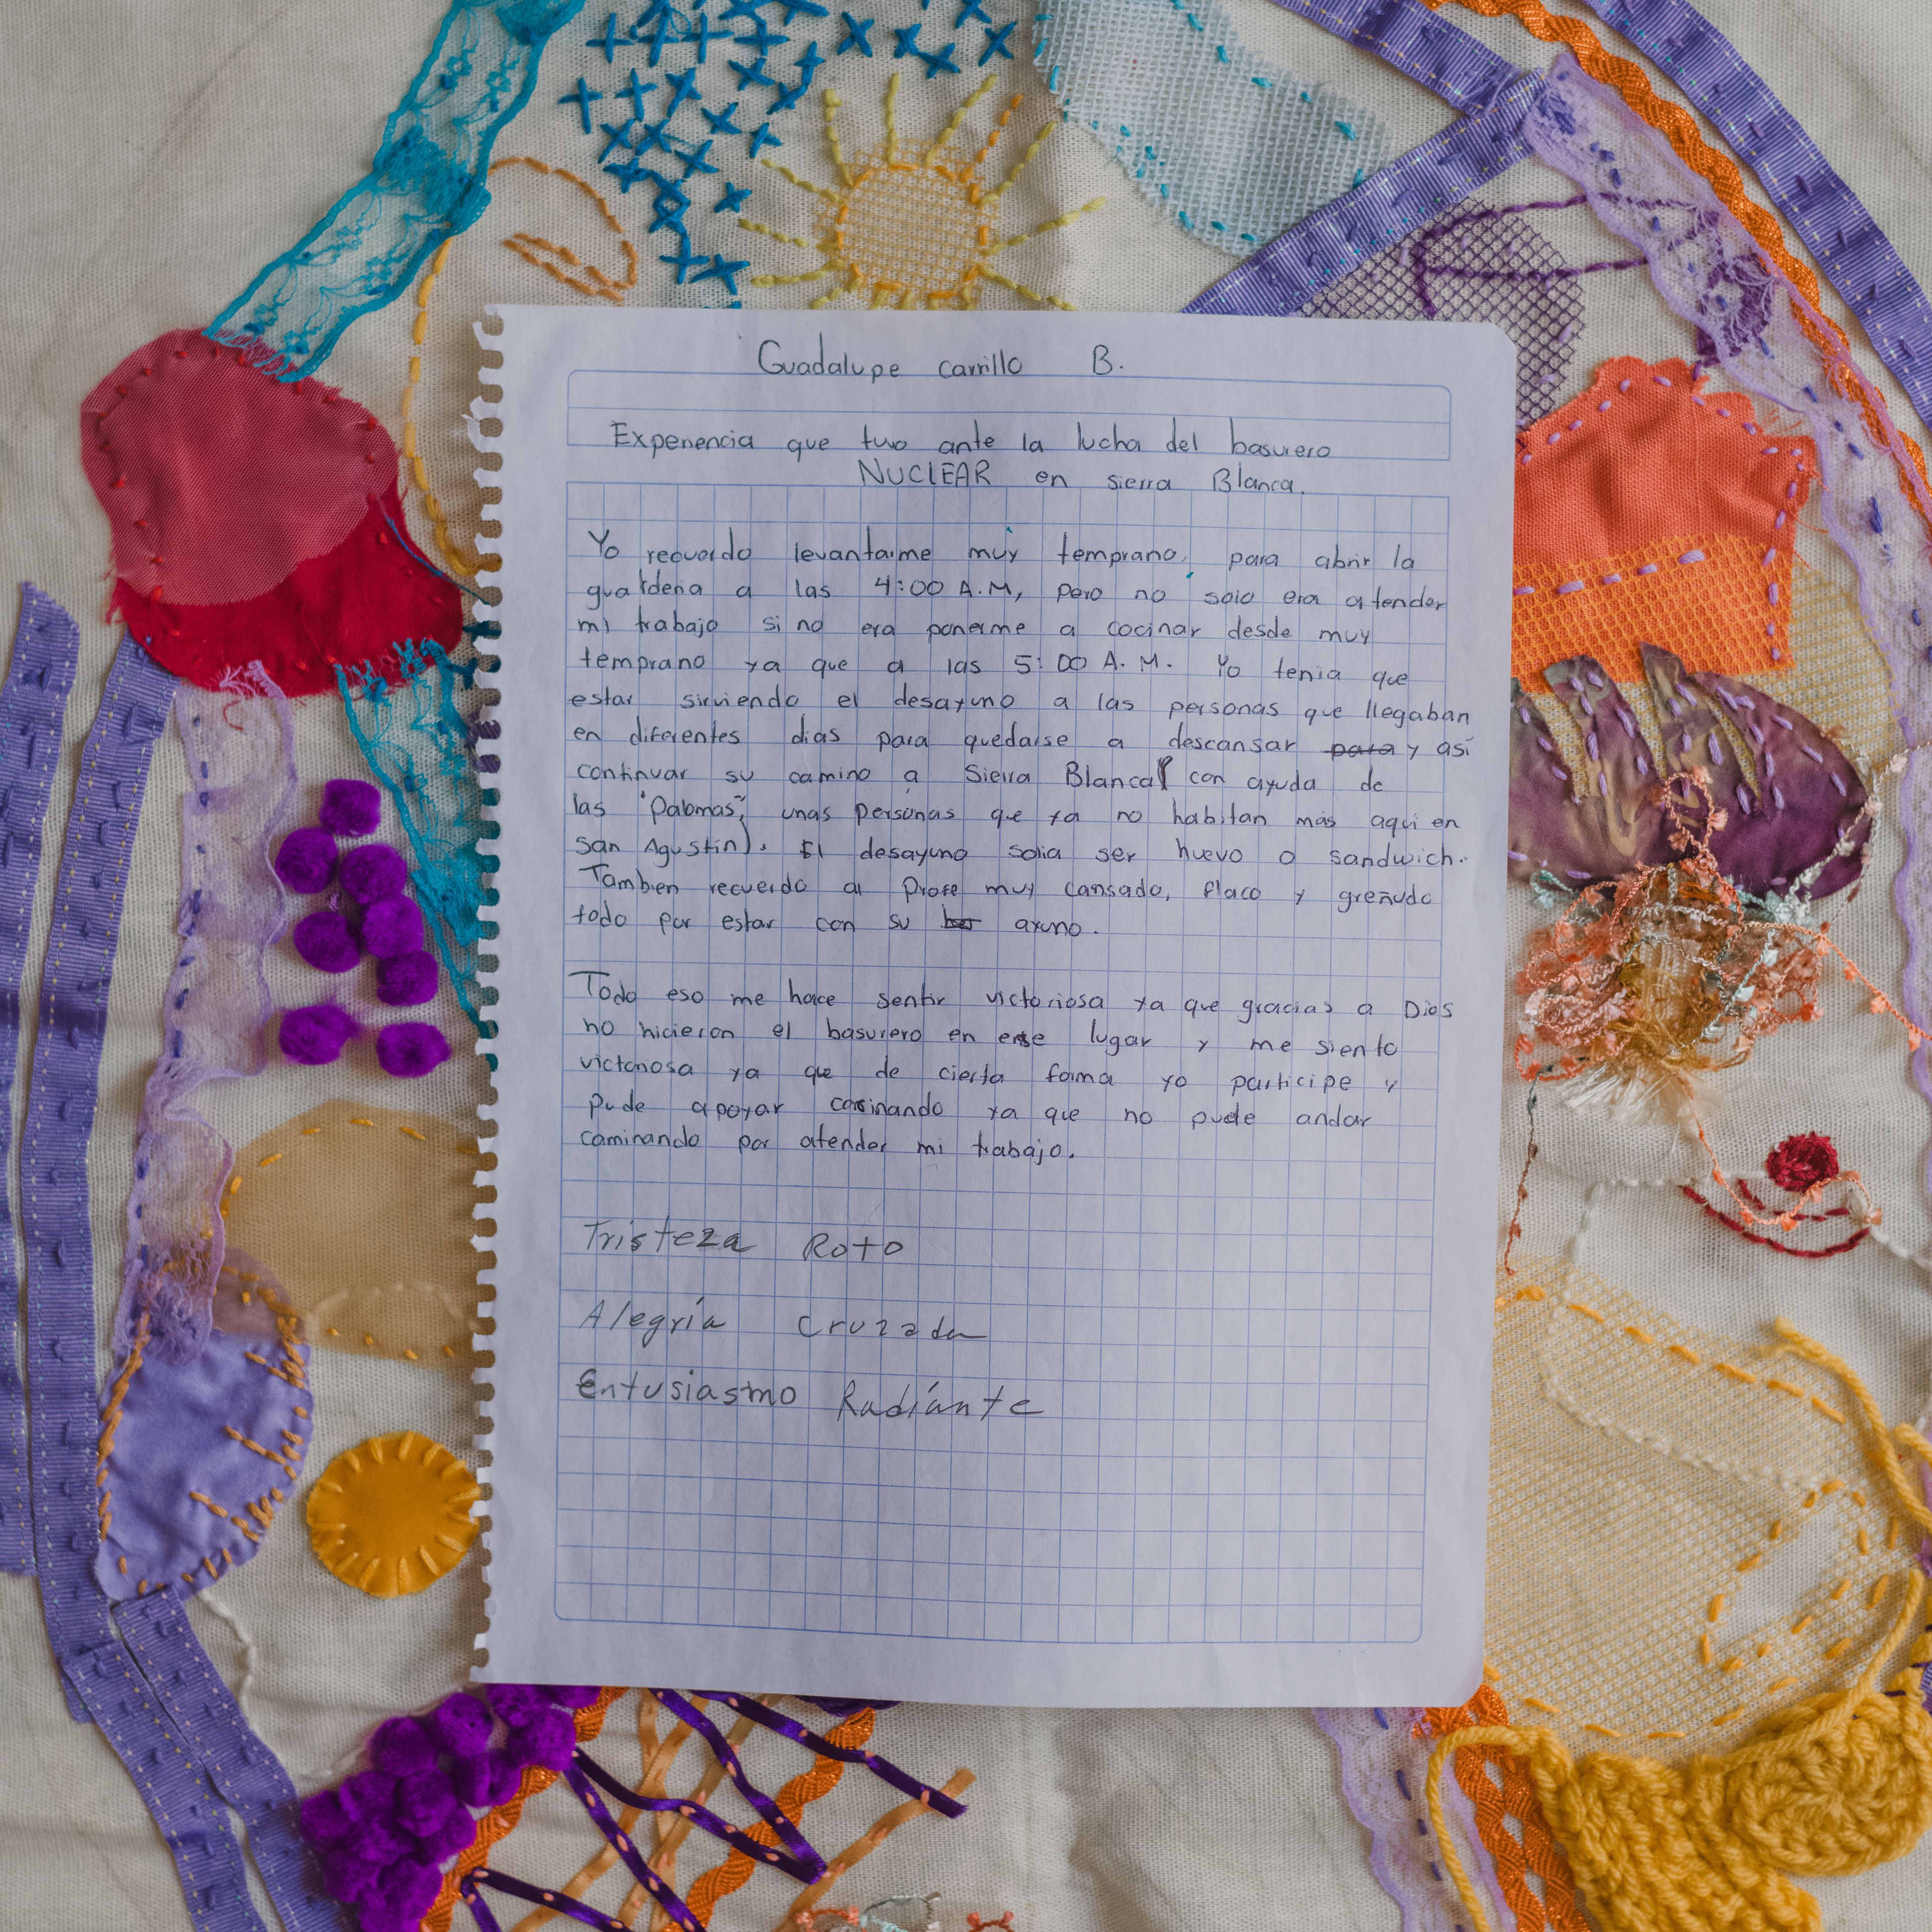 Guadalupe carrillo B.
Experiencia que tuvo ante la lucha del basurero
NUCLEAR en sierra Blanca.
Yo recuerdo levantarme muy temprano, para abrir la
guardería a las 4:00 A.M, pero no solo era atender
mi trabajo si no era ponerme a cocinar desde muy
temprano ya que a las 5:00 A.M. Yo tenia que
estar sirviendo el desayuno a las personas que llegaban
en diferentes dias para quedarse a descansar para y así
continuar su camino a Sierra Blanca( con ayuda de
las "Palomas", unas personas que ya no habitan más aquí en
San Agustín). El desayuno solia ser huevo o sandwich.
Tambien recuerdo al Profe muy cansado, flaco y greñudo
todo por estar con su ayuno.
Todo eso me hace sentir victoriosa ya que gracias a Dios
no hicieron el basurero en ese lugar y me siento
victoriosa ya que de cierta forma yo participe y
pude apoyar cocinando ya que no pude andar
caminando por atender mi trabajo.
Tristeza Roto
Alegría cruzada
Entusiasmo Radíante